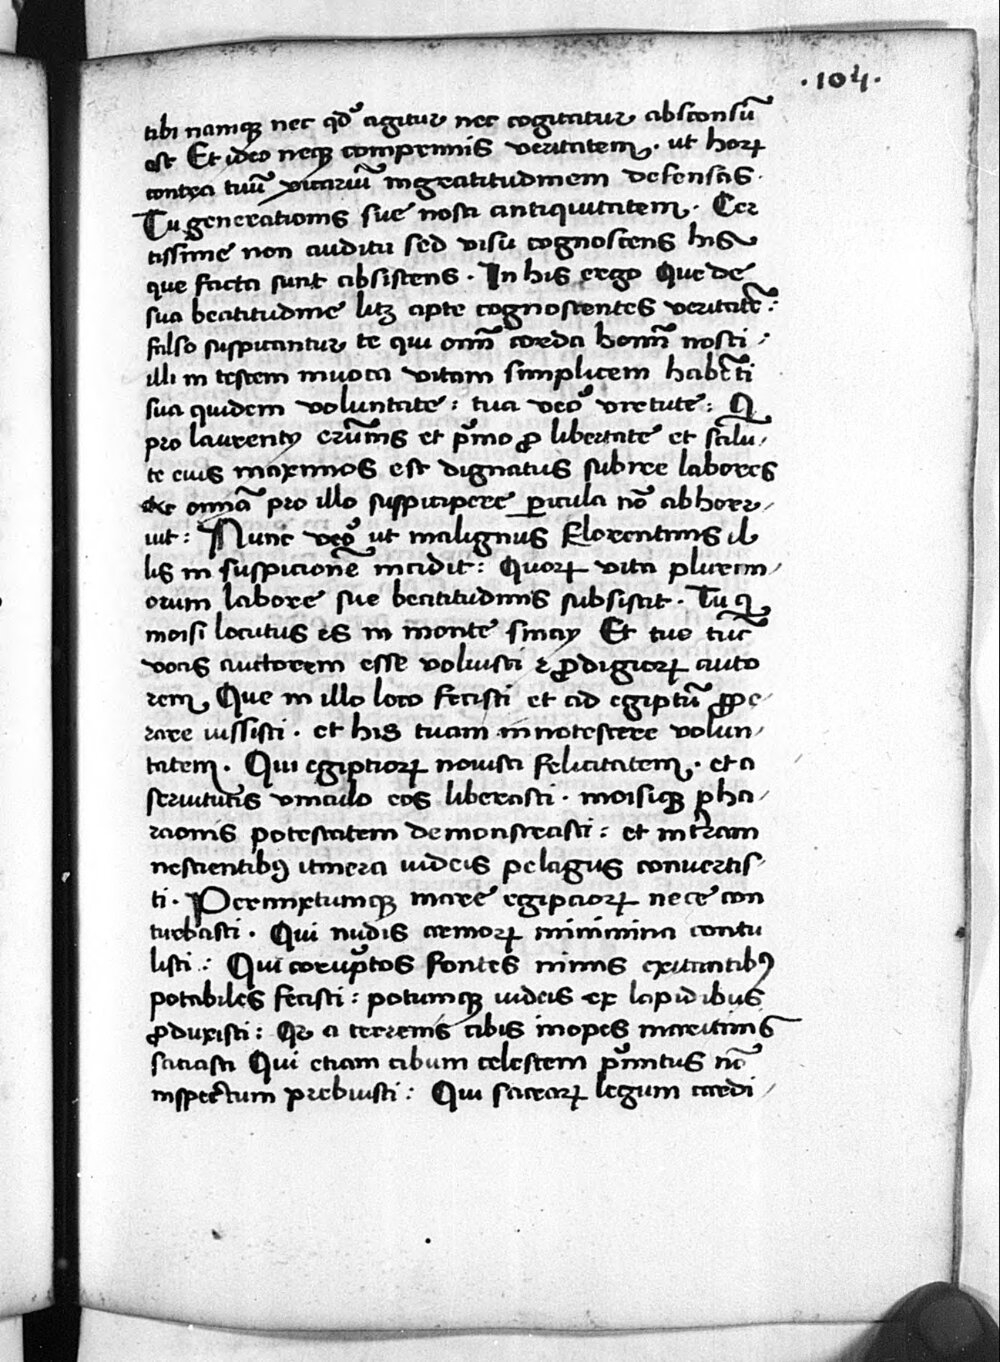 ·104·
tibi namq; nec qđ agitur nec cogitatur absconsū
est Et ideo neq; compremis veritatem. ut horꝝ
contra tuū vicariū ingratitudinem defensas.
Tu generationis sue nosti antiquitatem. Cer
tissime non auditu sed visu cognoscens his
que facta sunt absistens. In his ergo Que de
sua beatitudine litꝫ apte cognoscentes veritatē:
falso suspicantur te qui omī corda homī nosti:
illi in testem inuoca vitam simplicem habēti
sua quidem voluntate: tua veo᷎ virtute: Q
pro laurentij erūnis et pͥmo ꝓ libertate et salu/
te eius maximos est dignatus subire labores
et omīa pro illo suspicipere ꝑicula nō abhorr/
uit: Nunc veo᷎ ut malignus Florentinis il
lis in suspicionē incidit: Quorꝝ vita plurim/
orum labore sue beatitudinis subsistit. Tu q
moisi locutus es in monte sinay Et tue tūc
vocis auctorem esse voluisti ꝛ ꝓdigiorꝝ auto
rem Que in illo loco fecisti et ad egiptū ꝓpe/
rare iussisti. et his tuam innotescere volun/
tatem. Qui egiptiorꝝ nouisti felicitatem. et a
seruitutis vinculo eos liberasti. moisiq; pha/
raonis potestatem demonstrasti: et in tr̄am
nescientibꝰ itinera iudeis pelagus conuertis/
ti. Permixtumq; mare egipciorꝝ nece con
turbasti. Qui nudis armorꝝ munimina contu
listi: Qui coruptos fontes nimis exitantibꝰ
potabiles fecisti: potumq; iudeis ex lapidibus
ꝓduxisti: Qr a terrenis cibis inopes maritimis
saciasti Qui etiam cibum celestem pͥnitus nō
inspectum prebuisti: Qui sacrorꝝ legum credi/